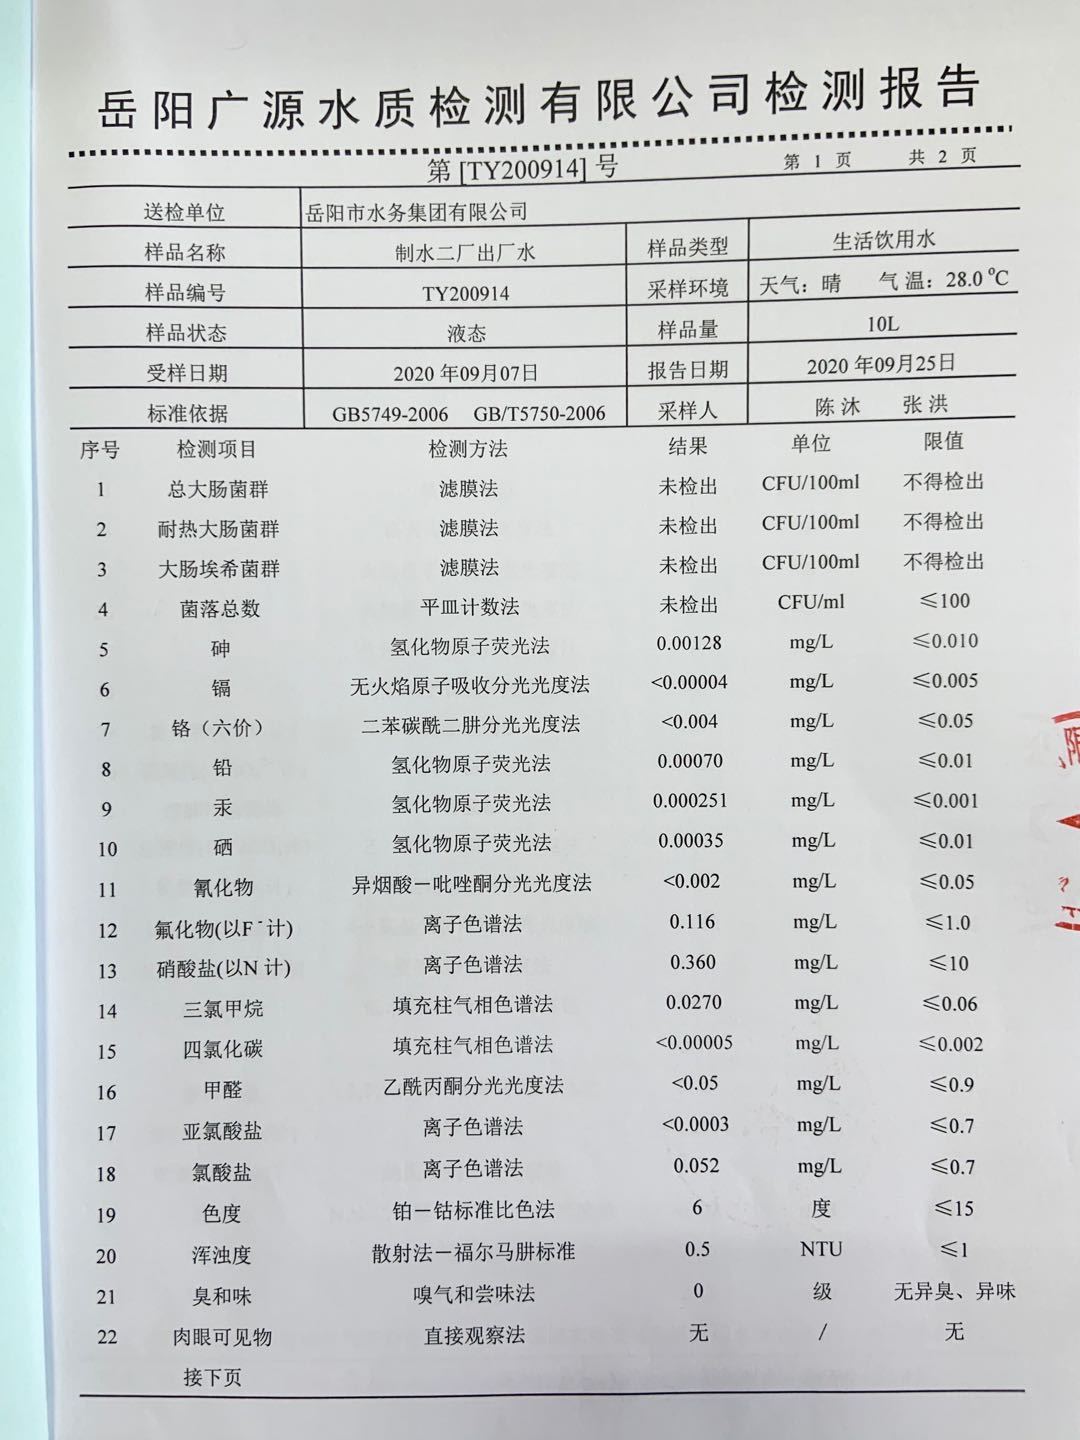 岳阳广源水质检测有限公司检测报告
第 [TY200914] 号 第 1 页 共 2 页
送检单位 岳阳市水务集团有限公司
样品名称 制水二厂出厂水 样品类型 生活饮用水
样品编号 TY200914 采样环境 天气：晴 气温：28.0 ℃
样品状态 液态 样品量 10L
受样日期 2020 年09月07日 报告日期 2020 年09月25日
标准依据 GB5749-2006 GB/T5750-2006 采样人 陈 沐 张 洪
序号 检测项目 检测方法 结果 单位 限值
1 总大肠菌群 滤膜法 未检出 CFU/100ml 不得检出
2 耐热大肠菌群 滤膜法 未检出 CFU/100ml 不得检出
3 大肠埃希菌群 滤膜法 未检出 CFU/100ml 不得检出
4 菌落总数 平皿计数法 未检出 CFU/ml ≤100
5 砷 氢化物原子荧光法 0.00128 mg/L ≤0.010
6 镉 无火焰原子吸收分光光度法 <0.00004 mg/L ≤0.005
7 铬（六价） 二苯碳酰二肼分光光度法 <0.004 mg/L ≤0.05
8 铅 氢化物原子荧光法 0.00070 mg/L ≤0.01
9 汞 氢化物原子荧光法 0.000251 mg/L ≤0.001
10 硒 氢化物原子荧光法 0.00035 mg/L ≤0.01
11 氰化物 异烟酸－吡唑酮分光光度法 <0.002 mg/L ≤0.05
12 氟化物(以F⁻计) 离子色谱法 0.116 mg/L ≤1.0
13 硝酸盐(以N 计) 离子色谱法 0.360 mg/L ≤10
14 三氯甲烷 填充柱气相色谱法 0.0270 mg/L ≤0.06
15 四氯化碳 填充柱气相色谱法 <0.00005 mg/L ≤0.002
16 甲醛 乙酰丙酮分光光度法 <0.05 mg/L ≤0.9
17 亚氯酸盐 离子色谱法 <0.0003 mg/L ≤0.7
18 氯酸盐 离子色谱法 0.052 mg/L ≤0.7
19 色度 铂－钴标准比色法 6 度 ≤15
20 浑浊度 散射法－福尔马肼标准 0.5 NTU ≤1
21 臭和味 嗅气和尝味法 0 级 无异臭、异味
22 肉眼可见物 直接观察法 无 / 无
接下页
限